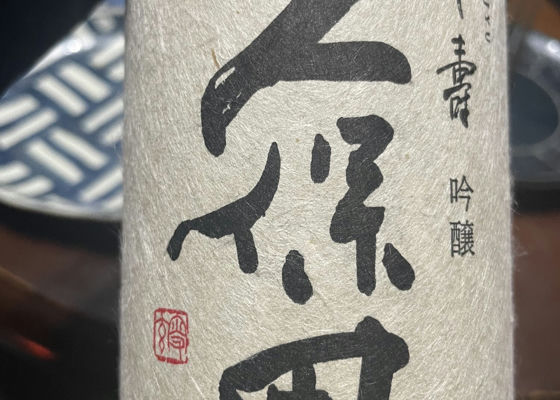 久保田
寿
吟醸